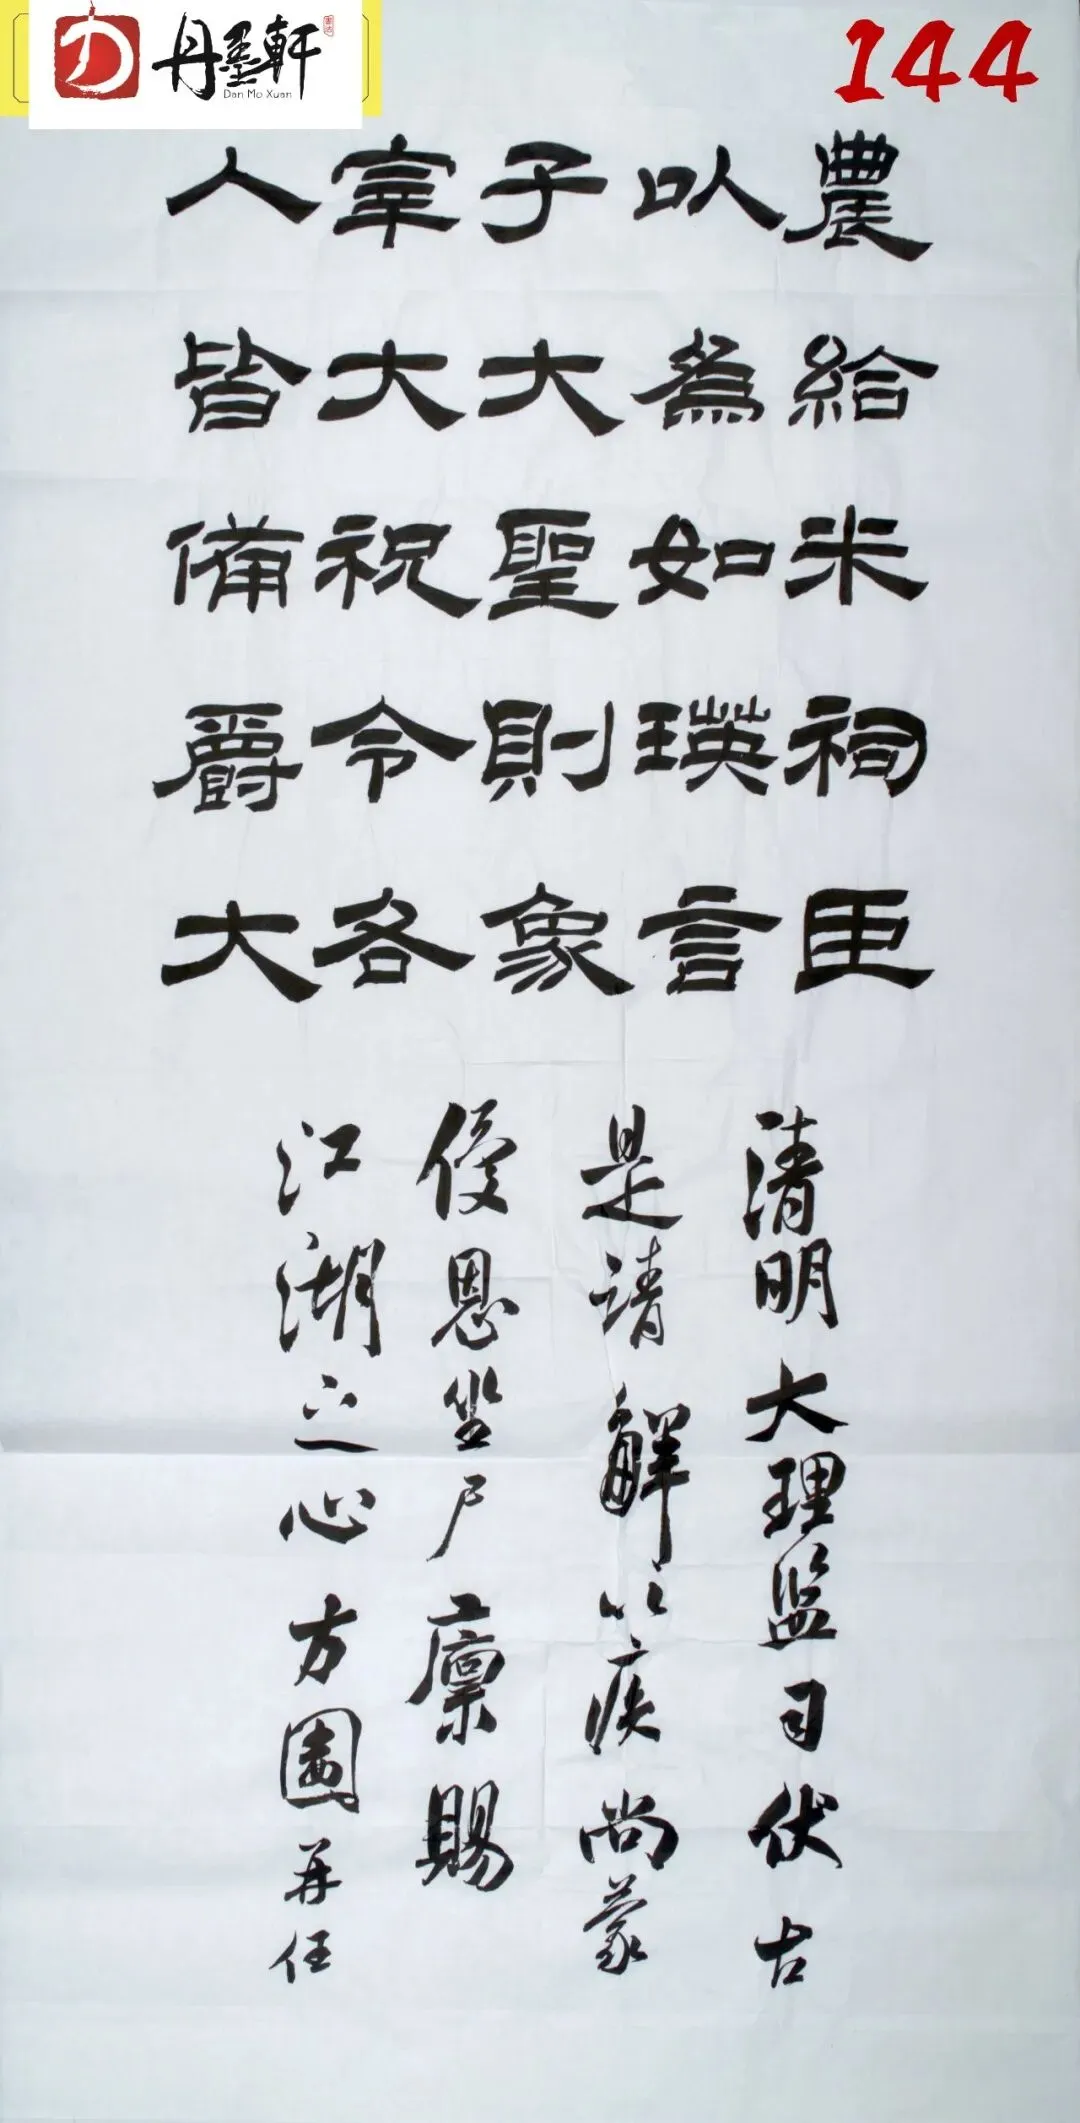 丹墨軒
Dan Mo Xuan
144
農給米祠臣
以為如瑛言
子大聖則象
宰大祝令各
人皆備爵大
清明大理监司伏古
是请解以疾尚蒙
優恩坐尸廪賜
江湖之心方圖
任